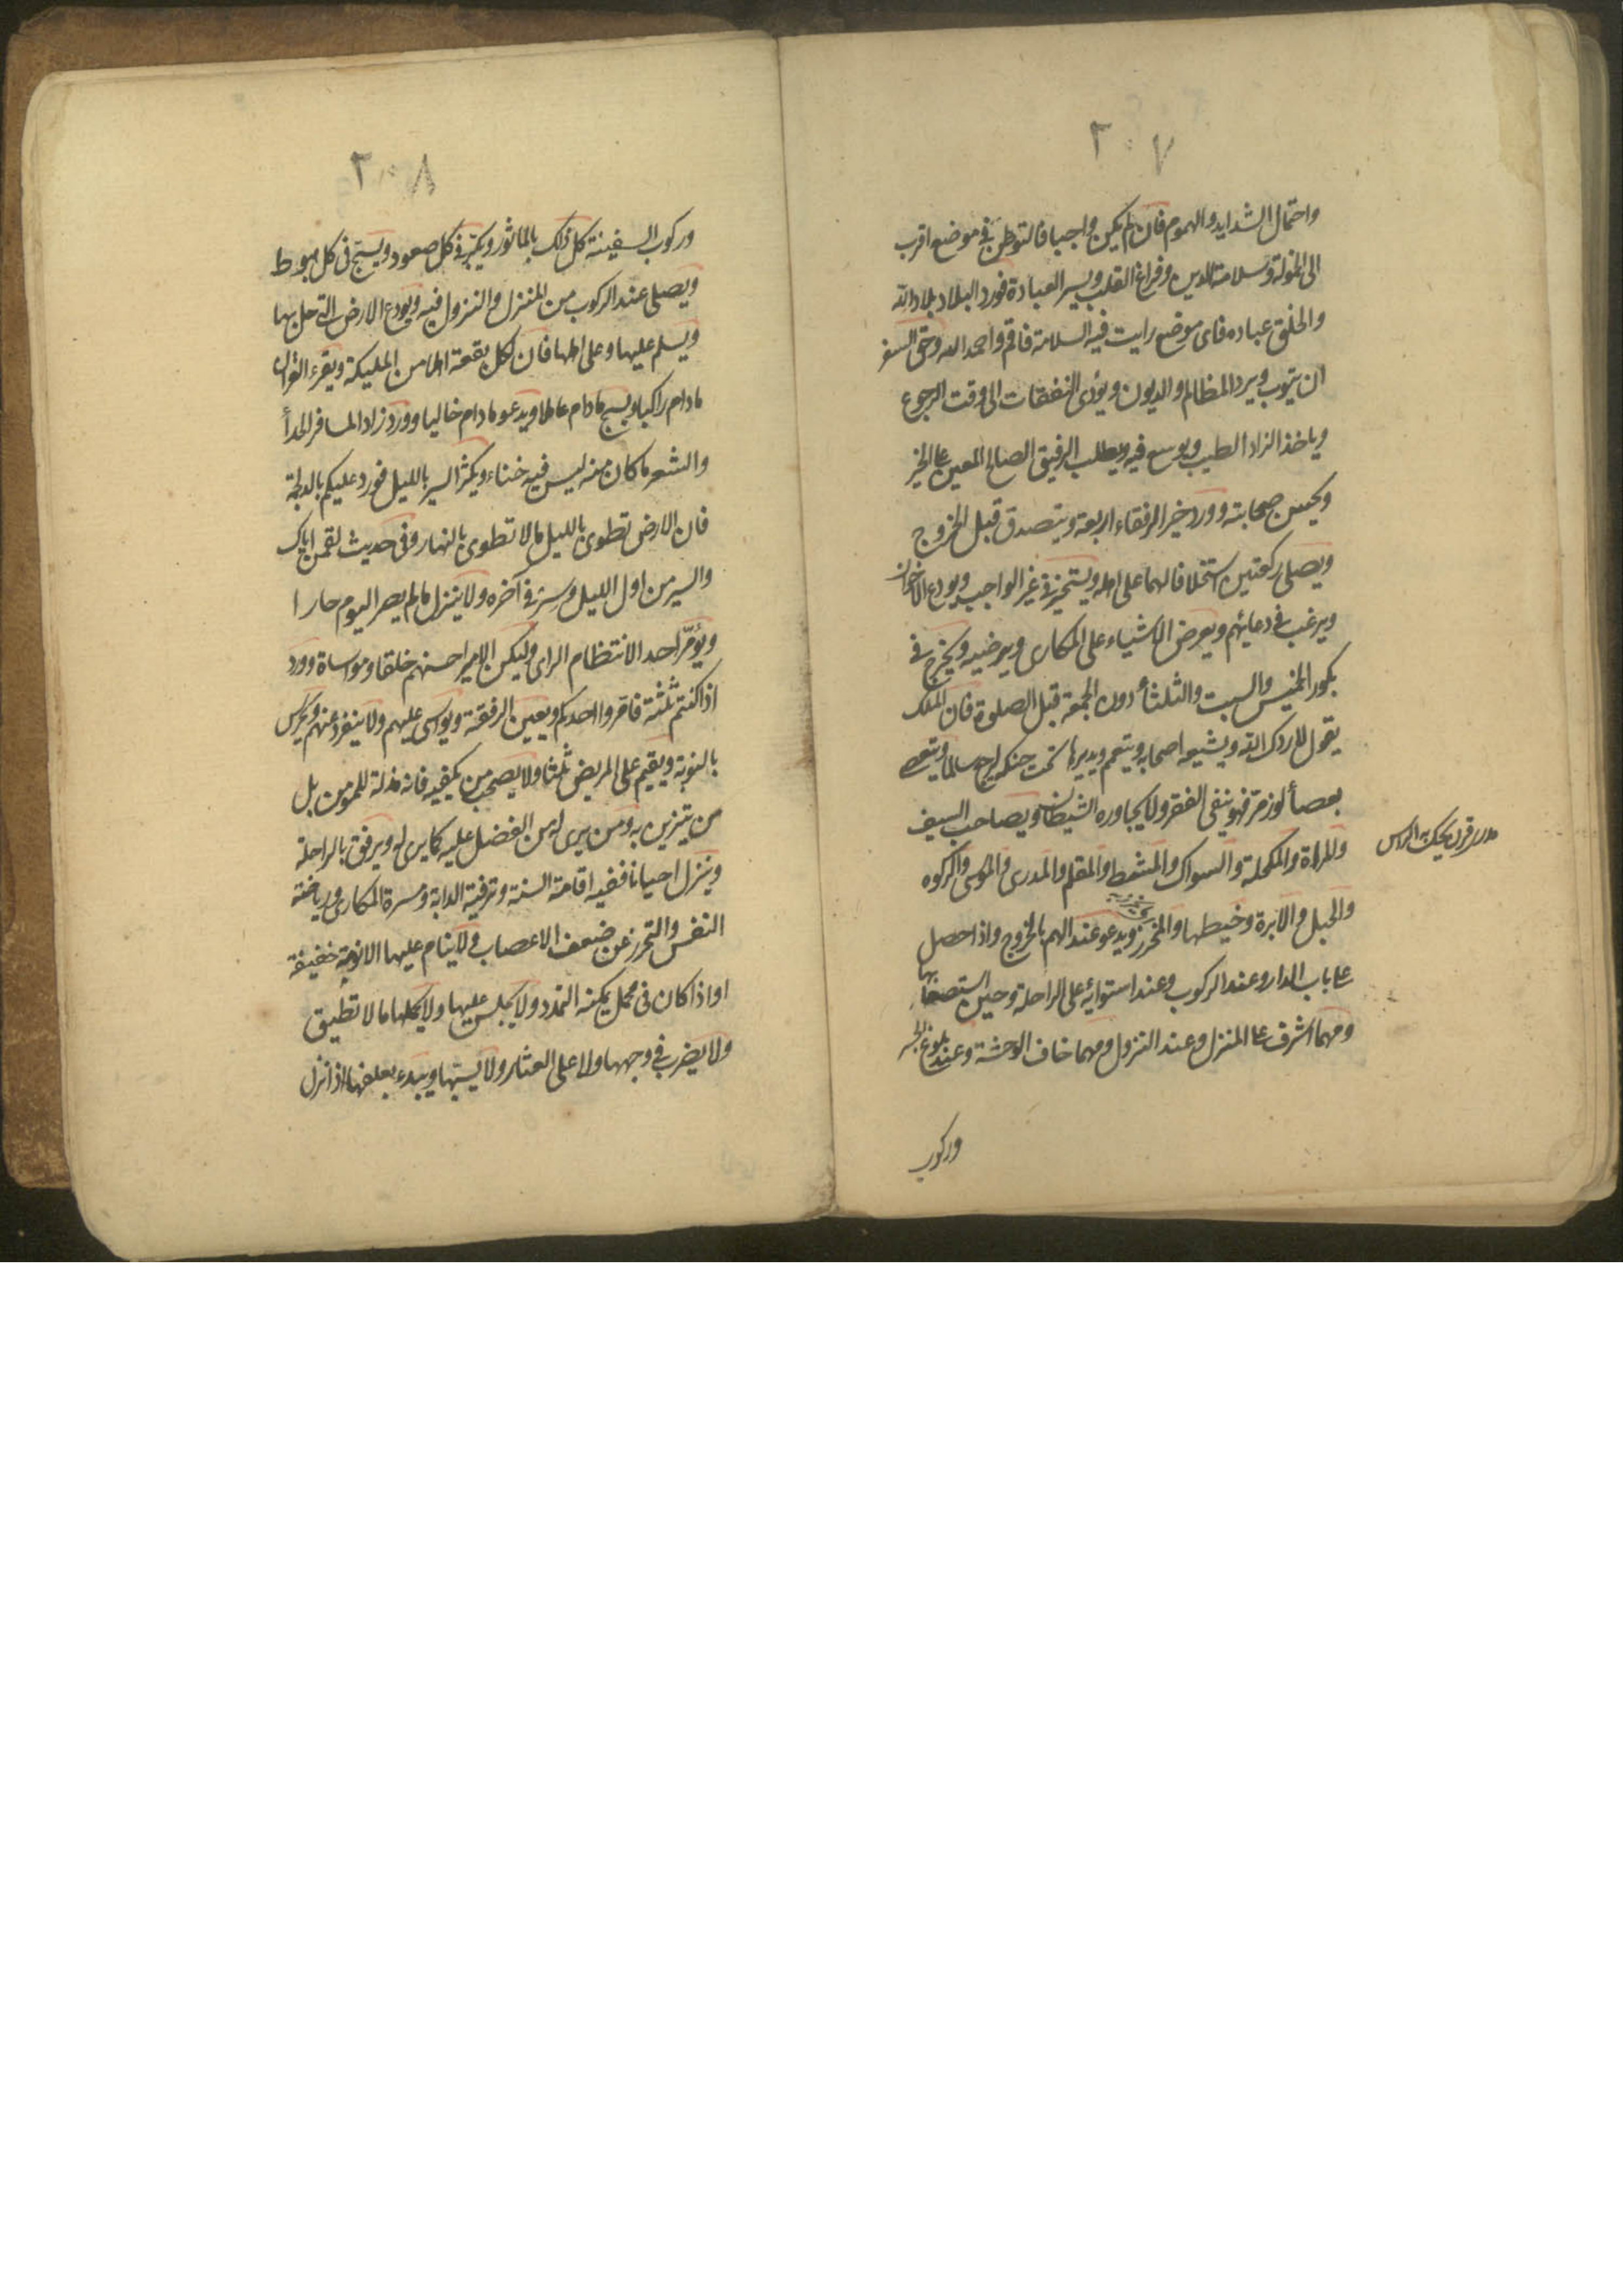 ٢٠٧
واحتمال الشدايد والهموم فان لم يكن واجبا فالتوطن في موضع اقرب
الى الخمولة وسلامة الدين وفراغ القلب ويسير العبادة فورد البلاد بلاد الله
والخلق عباده فاى موضع رايت فيه السلامة فاقم واحمد الله وحق السفر
ان يتوب ويرد المظالم والديون ويؤدى النفقات الى وقت الرجوع
وياخذ الزاد الطيب ويوسع فيه ويطلب الرفيق الصالح المعين على الخير
ويحسن صحابته وورد خير الرفقاء اربعة ويتصدق قبل الخروج
ويصلى ركعتين استخلافا لهما على اهله ويستخير في غير الواجب ويودع الاخوان
ويرغب في دعائهم ويعرض الاشياء على المكارى ويرضيه ويخرج في
بكور الخميس والسبت والثلثا دون الجمعة قبل الصلوة فان الملك
يقول لا ردك الله ويشيعه اصحابه ويتعمم ويديرها تحت حنكه ليرجع سالما ويتعصى
بعصا لوز مر فهو ينفى الفقر ولا يجاوره الشيطان ويصاحب السيف
والمراة والمكحلة والسواك والمشط والمقلم والمدرى والموسى والركوه
مدرى قرن يحك به الراس
والحبل والابرة وخيطها والمخرز ويدعو عند الهم بالخروج واذا حصل
على باب الدار وعند الركوب وعند استوائه على الراحلة وحين استصعابها
ومهما اشرف على المنزل وعند النزول ومهما خاف الوحشة وعند بلوغ
وركوب
٢٠٨
وركوب السفينة كل ذلك بالماثور ويكبر في كل صعود ويسبح فى كل هبوط
ويصلى عند الركوب من المنزل والنزول فيه ويودع الارض التى حل بها
ويسلم عليها وعلى اهلها فان لكل بقعة اهلا من المليكة ويقرء القران
مادام راكبا ويسبح مادام عاملا ويدعو مادام خاليا وورد زاد المسافر الحدا
والشعر ما كان منه ليس فيه خناء ويكثر السير بالليل فورد عليكم بالدلجة
فان الارض تطوى بالليل ما لا تطوى بالنهار وفى حديث لقمن اياك
والسير من اول الليل وسر في آخره ولا ينزل ما لم يصر اليوم حارا
ويؤمر احد الانتظام الراى وليكن الامير احسنهم خلقا ومواساة وورد
اذا كنتم ثلثة فامروا احدكم ويعين الرفقة ويواسى عليهم ولا ينفرد عنهم ويحرس
بالنوبة ويقيم على المريض ثلثا ولا يصحب من يكفيه فانه مذلة للمومن بل
من يتزين به ومن يرى له من الفضل عليه كما يرى له ويرفق بالراحلة
وينزل احيانا ففيه اقامة السنة وترفية الدابة ومسرة المكارى ورياضة
النفس والتحرز عن ضعف الاعصاب ولا ينام عليها الا نومة خفيفة
او اذا كان فى محمل يمكنه التمدد ولا يجلس عليها ولا يحملها ما لا تطيق
ولا يضرب في وجهها ولا على العثار ولا يسبها ويبدء بعلفها اذا نزل